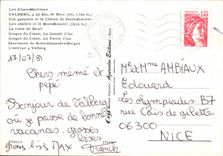 Les Alpes-Maritimes
VALBERG, à 85 Km. de Nice (Alt. 1700 m)
Vue générale et le Chalet du Saint-Bernard
Les chalets et le Mont-Mounier (2818 m)
La route de Quail
Gorges du Cians, La Grande Clue
Gorges du Cians, La Petite Clue
Sanctuaire de Notre-Dame-des-Neiges
L'arrivée à Valberg
17/07/81
Chers mémé et
pépé
Bonjour de Valberg
où je passe de bonnes
vacances. grosses
bises
MAX
Franck
Mr et Mme AMBIAUX
Edouard
Les Olympiades B7
rue Caïs de gilette
06300
NICE